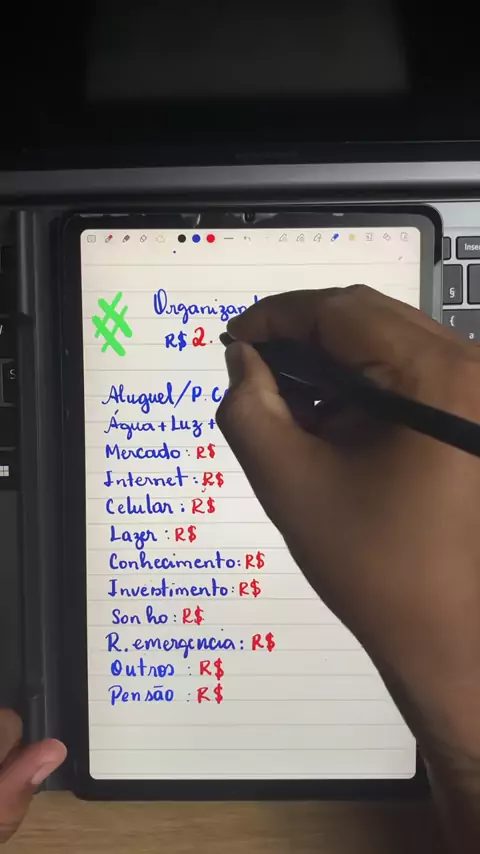 # Organizand
R$ 2.
Aluguel/P.C
Água+Luz+
Mercado: R$
Internet: R$
Celular: R$
Lazer: R$
Conhecimento: R$
Investimento: R$
Sonho: R$
R. emergencia: R$
Outros: R$
Pensão: R$
Inse
§
{
a